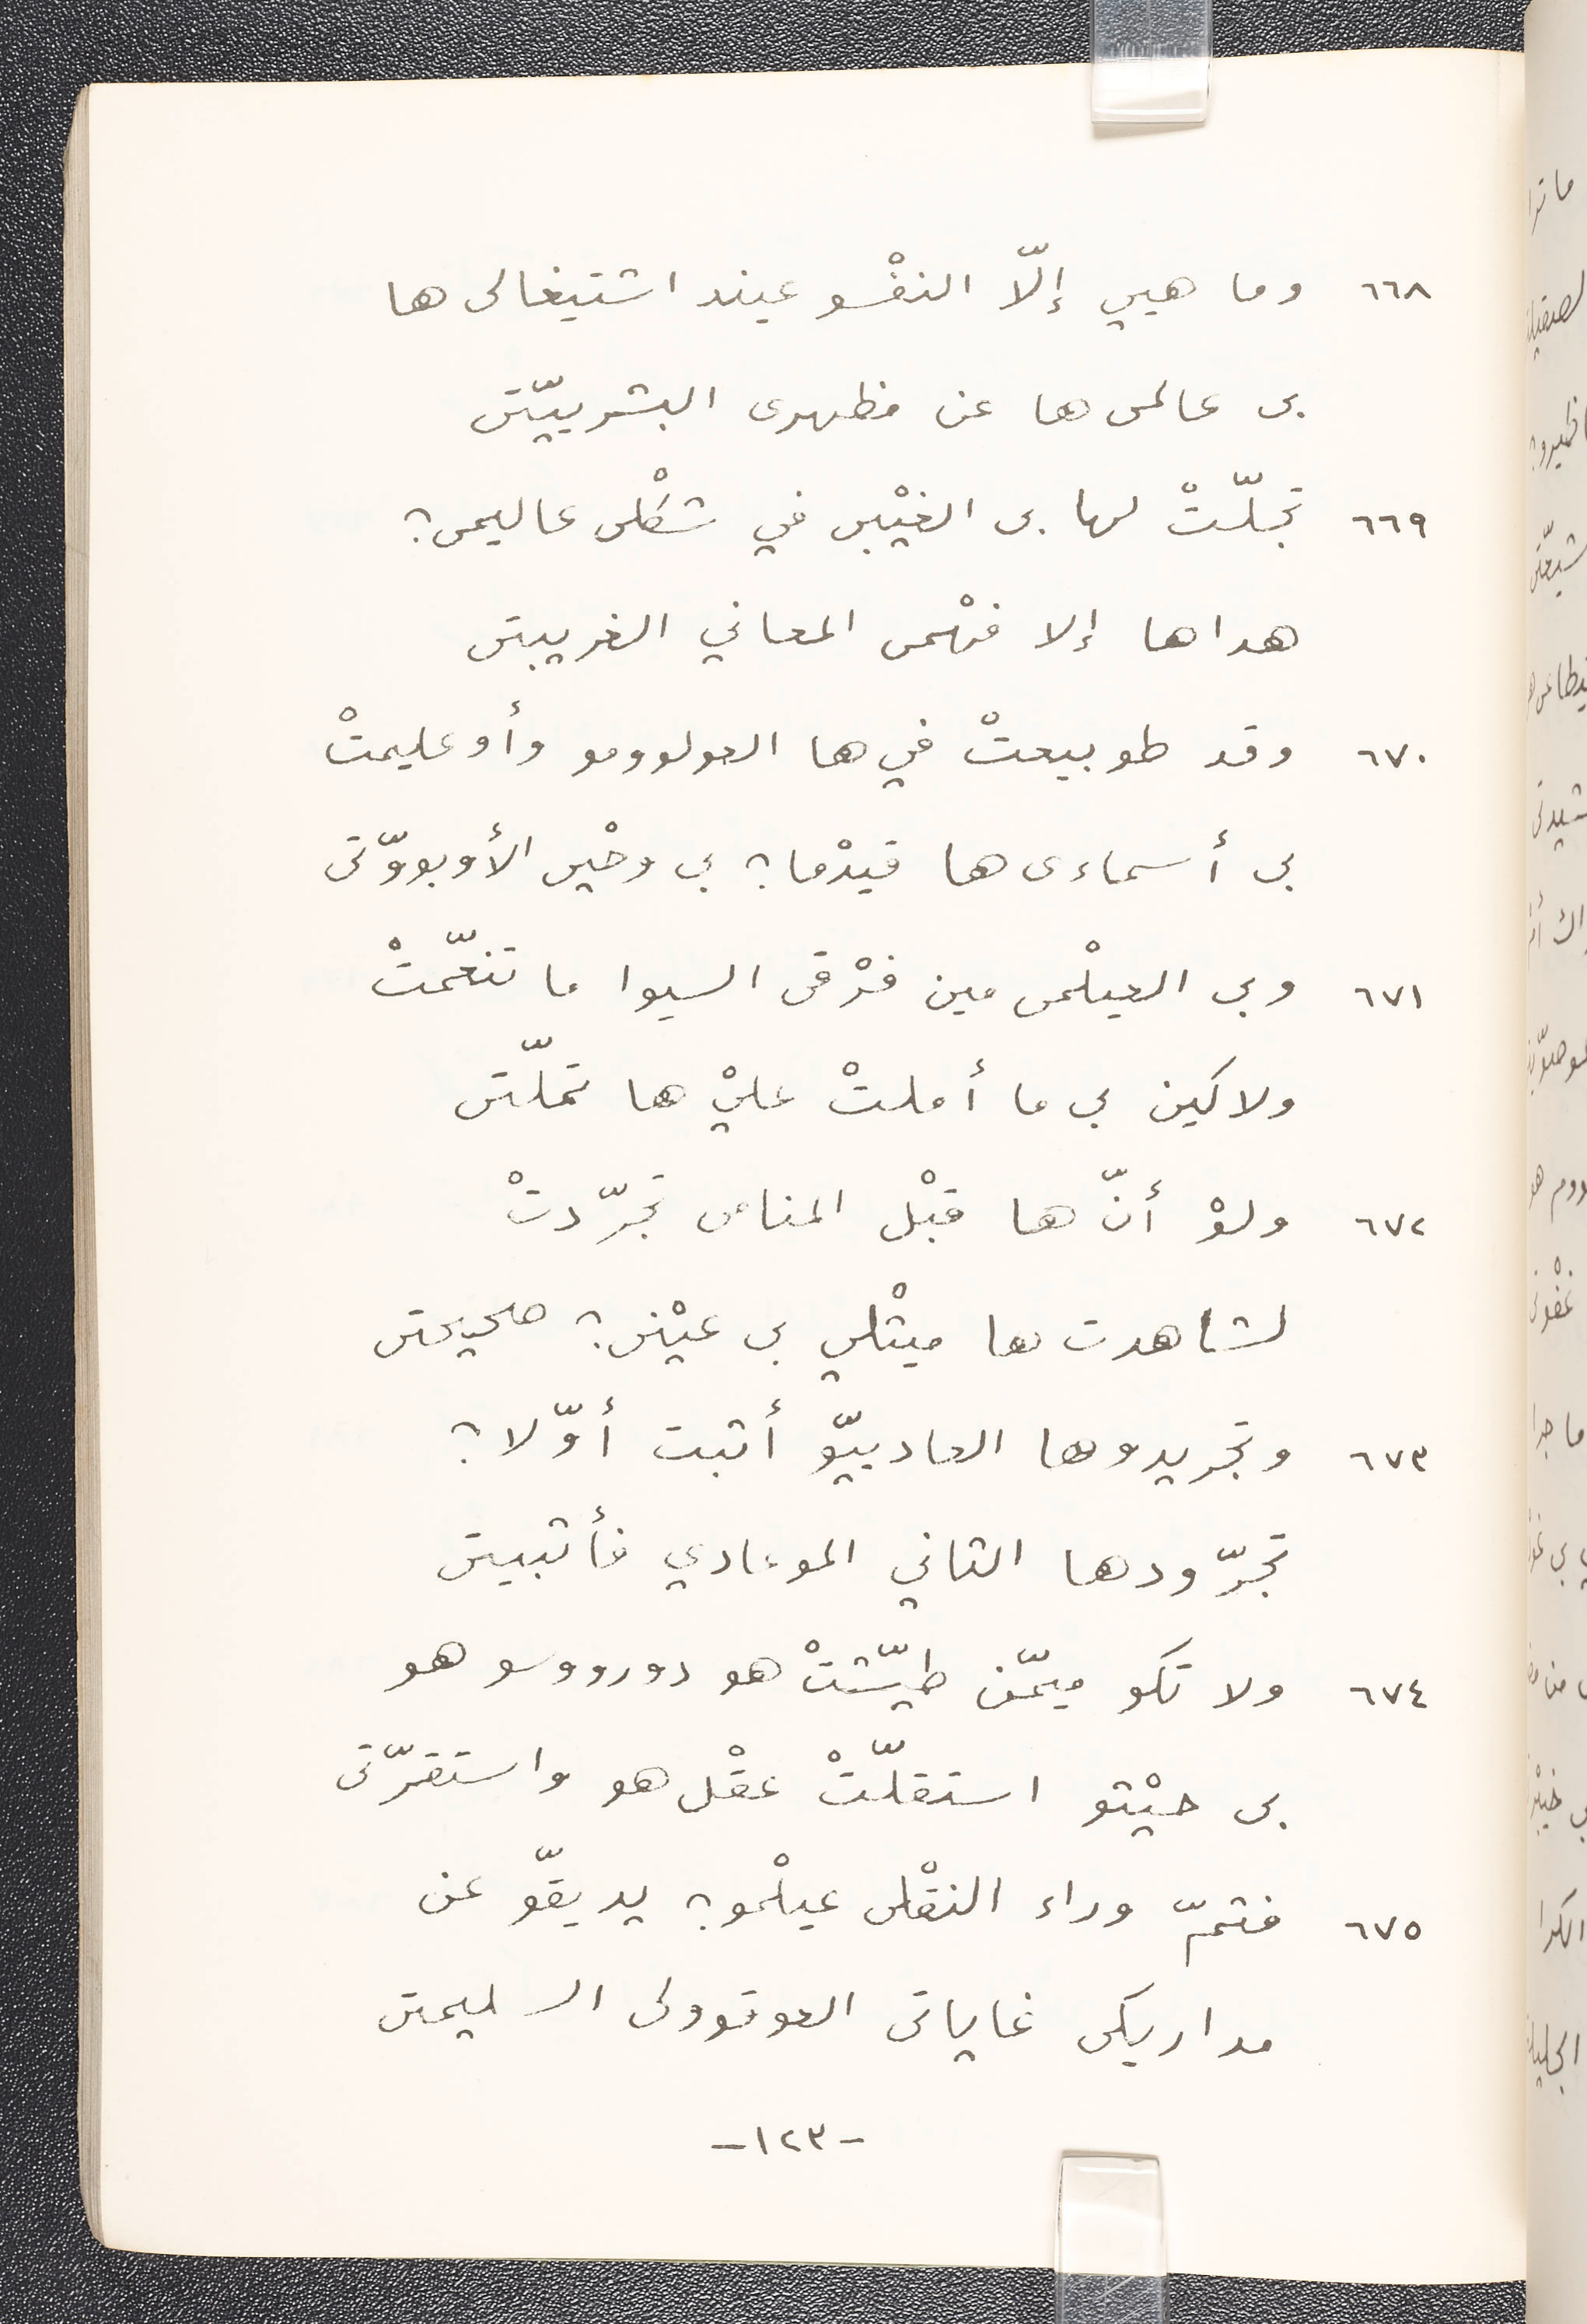 ٦٦٨ وما هيي إلّا النفْسو عيند اشتيغالى ها
بى عالمى ها عن مظهرى البشرييّتى
٦٦٩ تجلّتْ لها بى الغيْبى في شكْلى عاليمى؟
هداها إلا فهْمى المعاني الغريبتى
٦٧٠ وقد طوبيعتْ في ها العولوومو وأوعليمتْ
بى أسماءى ها قيدْما؟ بى وحْيى الأوبووّتى
٦٧١ وبى العيلْمى مين فرْقى السيوا ما تنعّمتْ
ولاكين بى ما أملتْ عليْ ها تملّتى
٦٧٢ ولوْ أنّ ها قبْل المنامى تجرّدتْ
لشاهدت ها ميثْلي بى عيْنى؟ صحيحتى
٦٧٣ وتجريدوها العادييّو أثبت أوّلا؟
تجرّودها الثاني الموعادي فأثبيتى
٦٧٤ ولا تكو ميمّن طيّشتْ هو دورووسو هو
بى حيْثو استقلّتْ عقْل هو واستفزّتى
٦٧٥ فثمّ وراء النقْلى عيلْمو؟ يديقّو عن
مداريكى غاياتى العوقوولى السليمتى
-١٢٣-